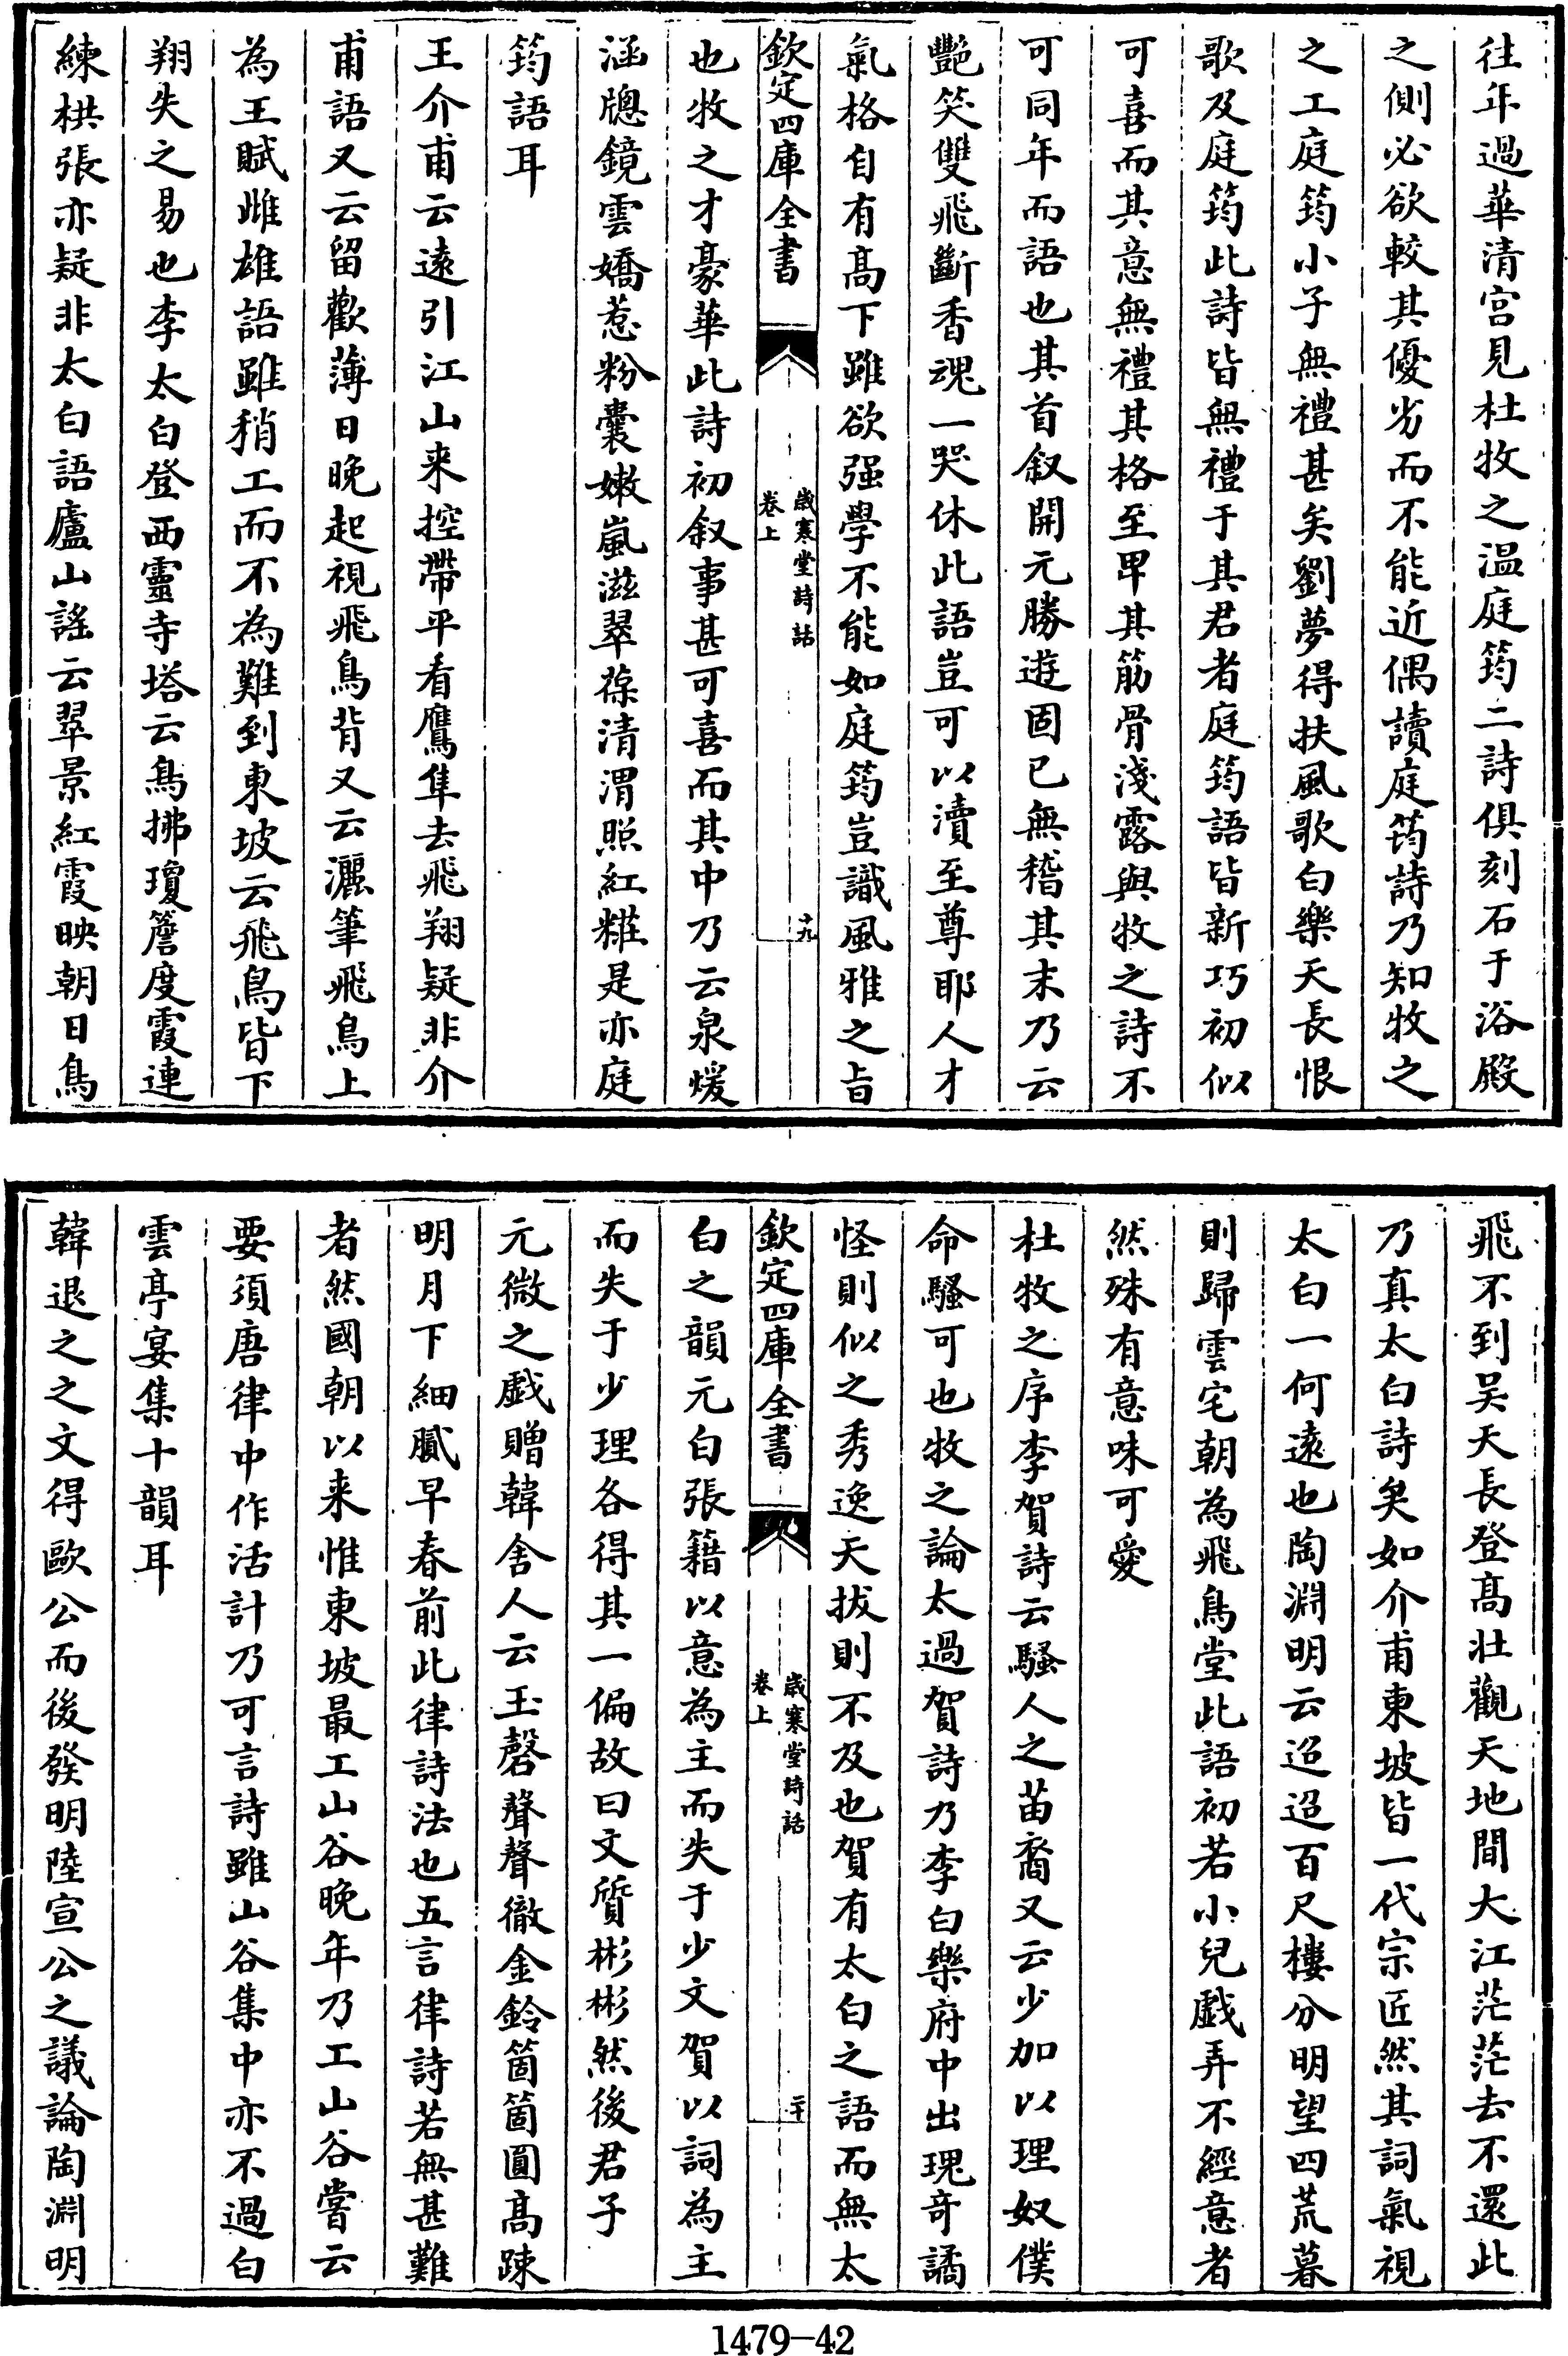 往年過華清宫見杜牧之温庭筠二詩俱刻石于浴殿
之側必欲較其優劣而不能近偶讀庭筠詩乃知牧之
之工庭筠小子無禮甚矣劉夢得扶風歌白樂天長恨
歌及庭筠此詩皆無禮于其君者庭筠語皆新巧初似
可喜而其意無禮其格至卑其筋骨淺露與牧之詩不
可同年而語也其首叙開元勝遊固已無稽其末乃云
艷笑雙飛斷香魂一哭休此語豈可以瀆至尊耶人才
氣格自有髙下雖欲强學不能如庭筠豈識風雅之旨
欽定四庫全書
歲寒堂詩話
卷上
十九
也牧之才豪華此詩初叙事甚可喜而其中乃云泉煖
涵牕鏡雲嬌惹粉囊嫩嵐滋翠葆清渭照紅糚是亦庭
筠語耳
王介甫云遠引江山来控帶平看鷹隼去飛翔疑非介
甫語又云留歡薄日晚起視飛鳥背又云灑筆飛鳥上
為王賦雌雄語雖稍工而不為難到東坡云飛鳥皆下
翔失之易也李太白登西靈寺塔云鳥拂瓊簷度霞連
練栱張亦疑非太白語廬山謠云翠景紅霞映朝日鳥
飛不到吴天長登髙壯觀天地間大江茫茫去不還此
乃真太白詩矣如介甫東坡皆一代宗匠然其詞氣視
太白一何遠也陶淵明云迢迢百尺樓分明望四荒暮
則歸雲宅朝為飛鳥堂此語初若小兒戯弄不經意者
然殊有意味可愛
杜牧之序李賀詩云騷人之苗裔又云少加以理奴僕
命騷可也牧之論太過賀詩乃李白樂府中出瑰奇譎
怪則似之秀逸天拔則不及也賀有太白之語而無太
欽定四庫全書
歲寒堂詩話
卷上
二十
白之韻元白張籍以意為主而失于少文賀以詞為主
而失于少理各得其一偏故曰文質彬彬然後君子
元微之戯贈韓舍人云玉磬聲聲徹金鈴箇箇圓髙踈
明月下細膩早春前此律詩法也五言律詩若無甚難
者然國朝以来惟東坡最工山谷晚年乃工山谷嘗云
要須唐律中作活計乃可言詩雖山谷集中亦不過白
雲亭宴集十韻耳
韓退之之文得歐公而後發明陸宣公之議論陶淵明
1479—42